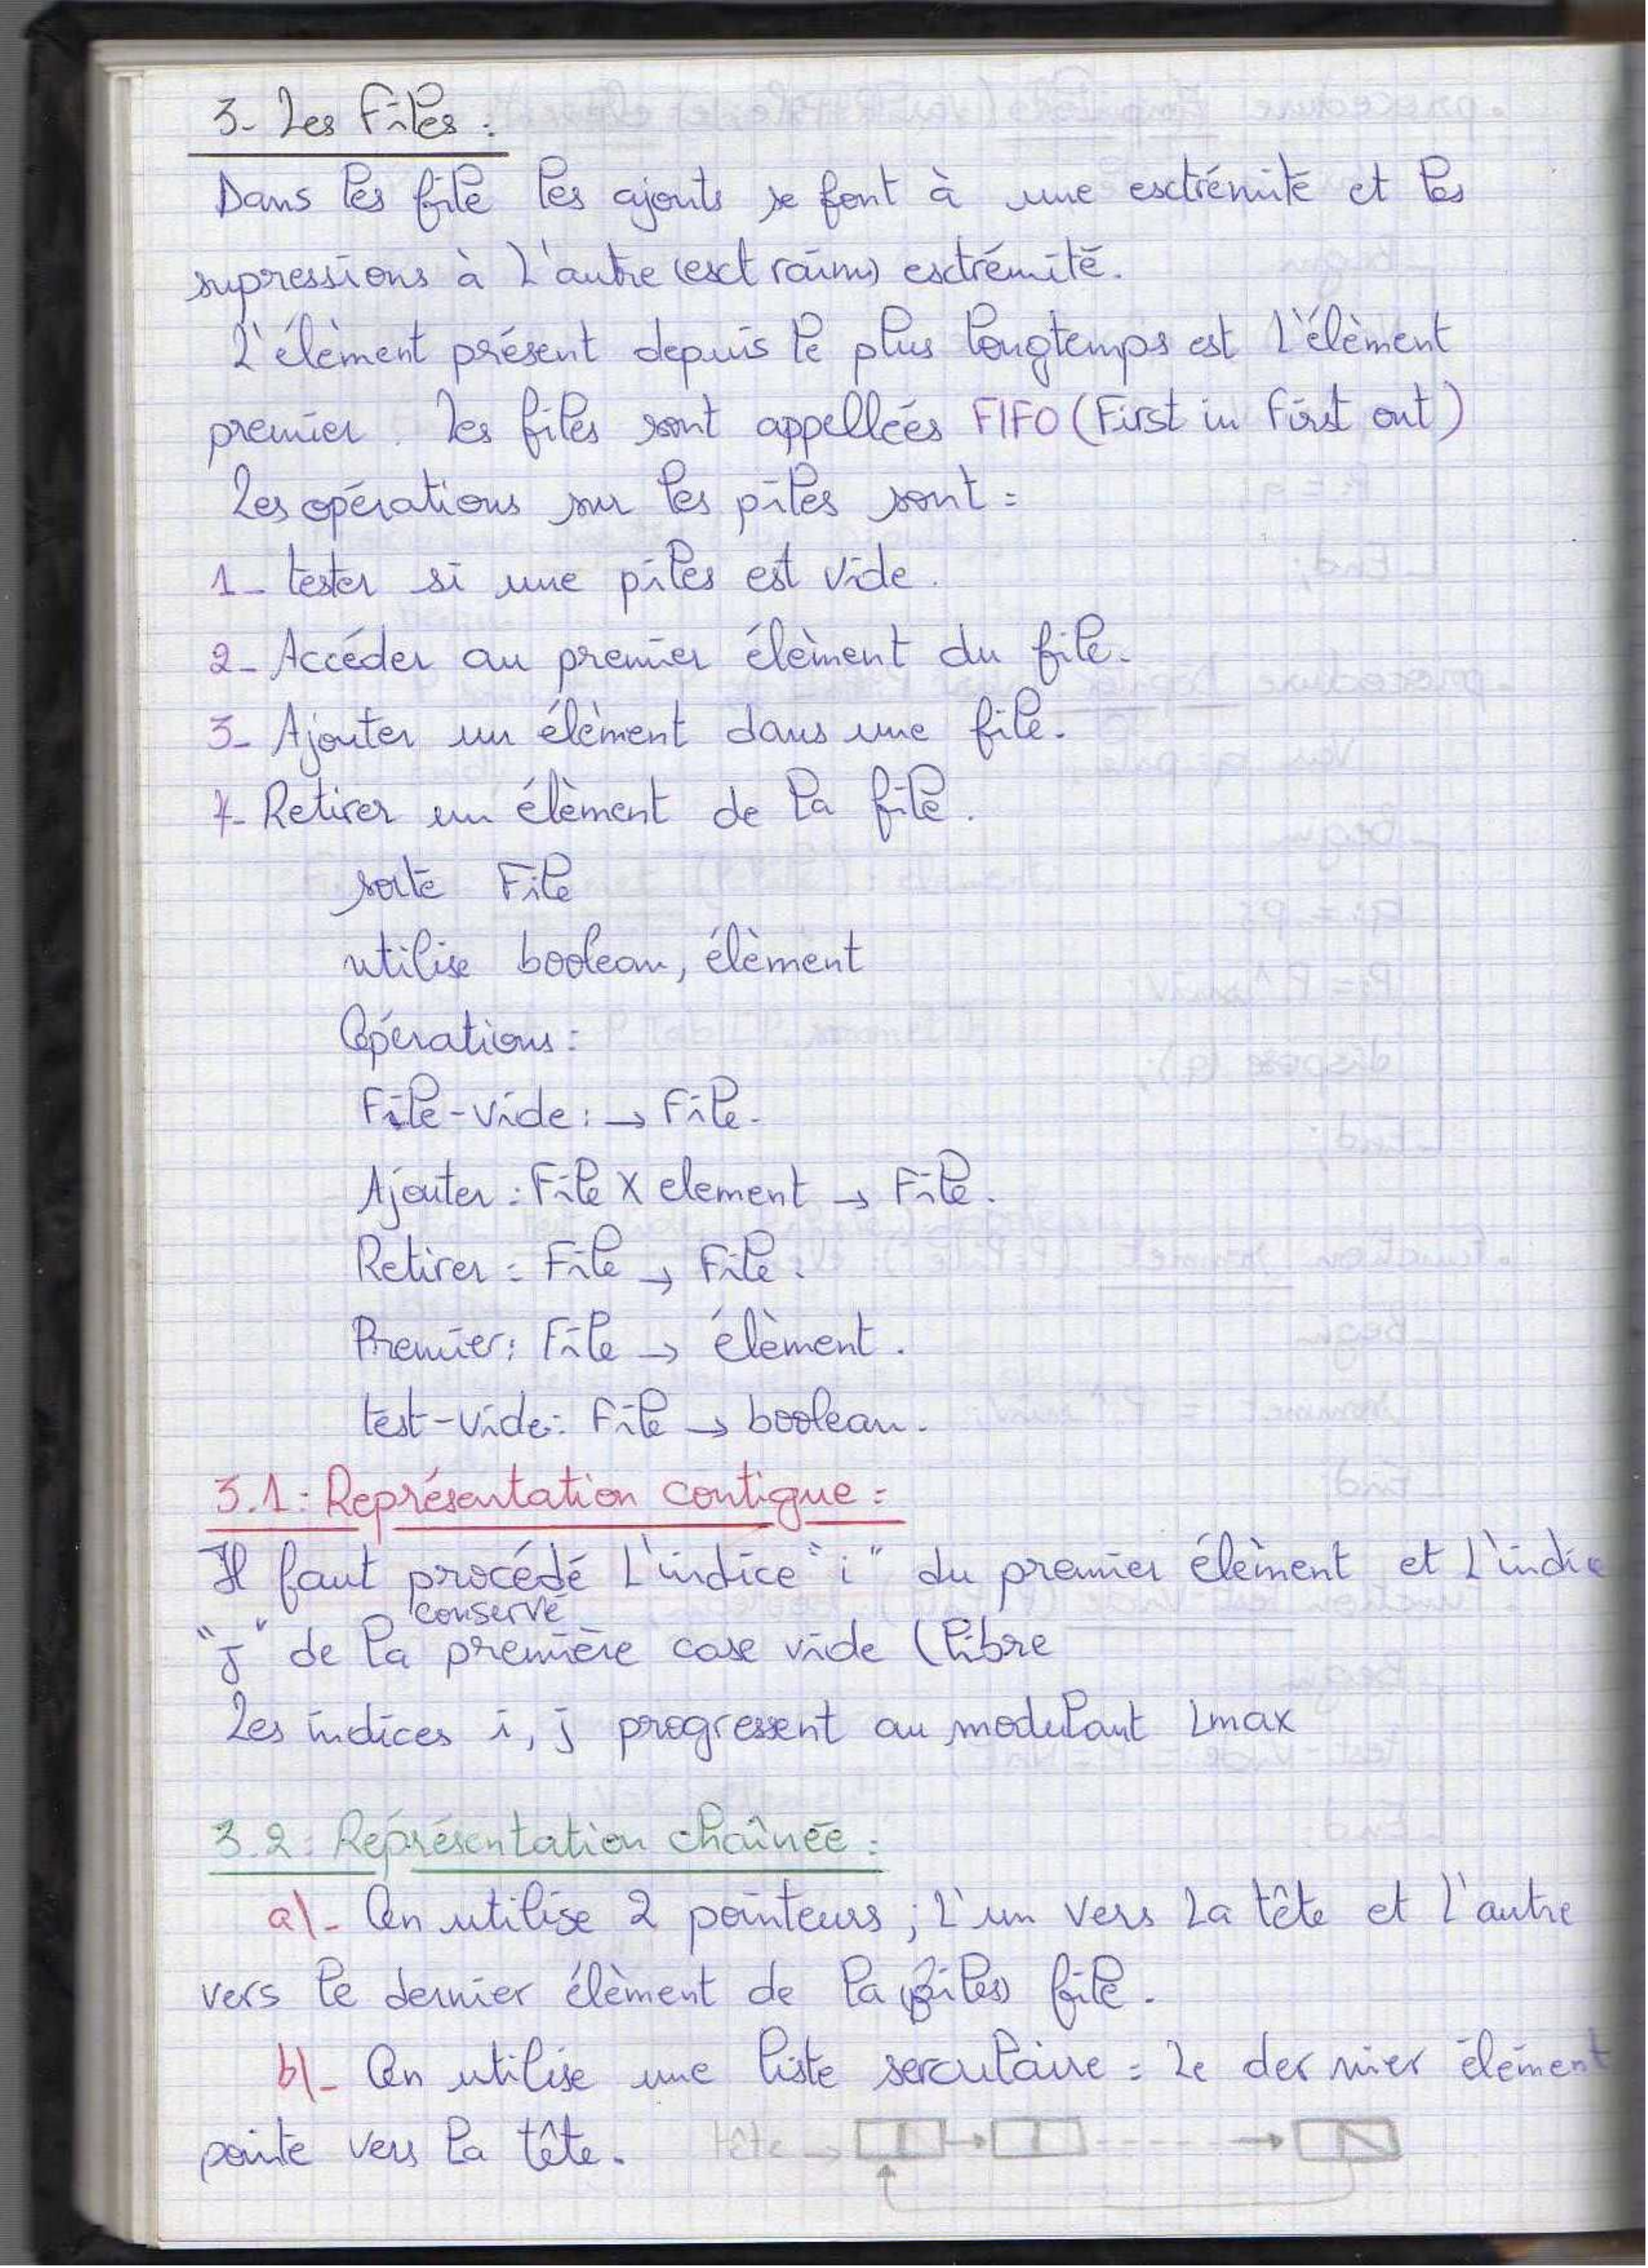 3- Les Files :
Dans les file les ajouts se font à une esctrémité et les
supressions à L'autre (esct raim) esctrémité.
L'élèment présent depuis le plus longtemps est L'élèment
premier. Les files sont appellées FIFO (First in First out)
Les opérations sur les piles sont :
1- tester si une piles est vide.
2- Accéder au premier élèment du file.
3- Ajouter un élèment dans une file.
4- Retirer un élèment de la file.
sorte File
utilise boolean, élèment
Opérations :
File-vide : → File.
Ajouter : File X element → File.
Retirer : File → File.
Premier : File → élèment.
test-vide : File → boolean.
3.1 : Représentation contigue :
Il faut procédé L'indice "i" du premier élèment et L'indice
conservé
"j" de la première case vide (libre
Les indices i, j progressent au modulant Lmax
3.2 : Représentation chaînée :
a)- On utilise 2 pointeurs ; L'un vers La tête et L'autre
vers le dernier élèment de la (piles) file.
b)- On utilise une liste serculaire : Le dernier élément
pointe vers la tête. tête →